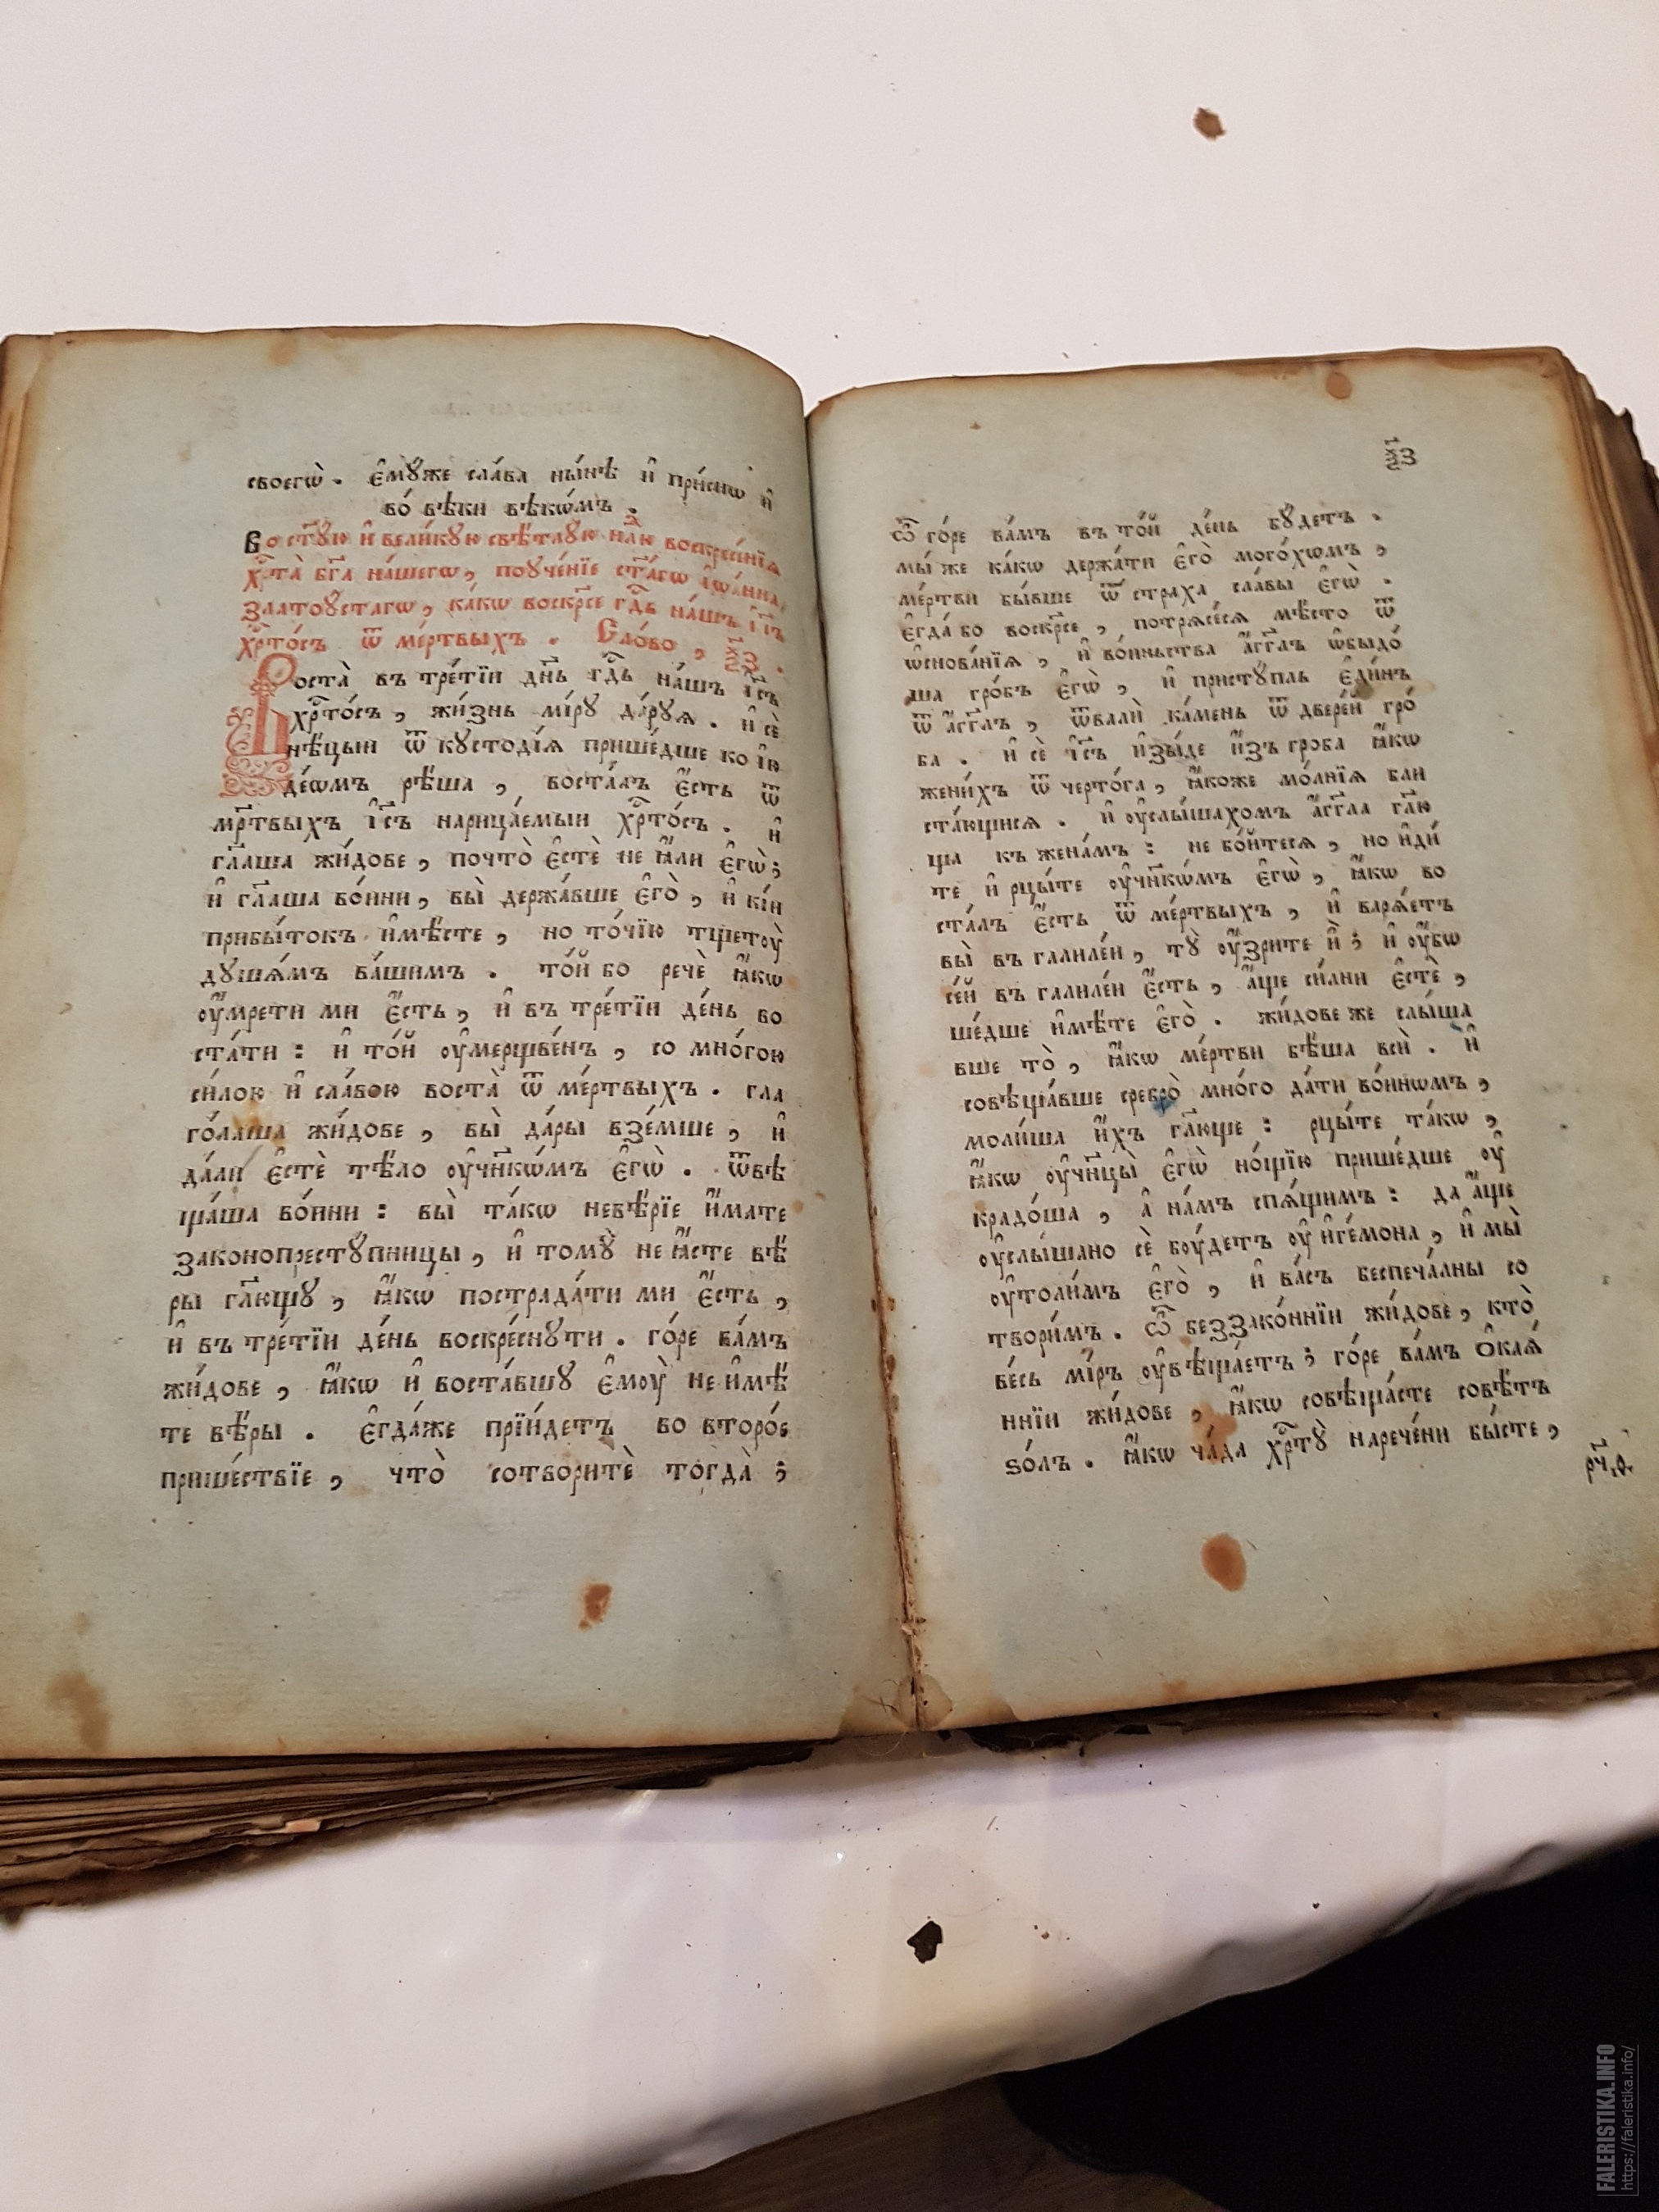 своегѡ̀. є҆мꙋ́же сла́ва ны́нѣ и҆ при́снѡ и҆
во́ вѣки вѣкѡ́мъ.
Во ст҃ꙋ́ю и҆ вели́кꙋю свѣ́тлꙋю нлⷣю воскрⷭе́нїѧ
хрⷭ҇та̀ бг҃а на́шегѡ, поꙋче́нїе ст҃а́гѡ і҆ѡа́нна
златоꙋстагѡ, ка́кѡ воскрⷭ҇е гдⷭ҇ь на́шъ і҆с҃ъ
хрⷭ҇то́съ ѿ ме́ртвыхъ. Сло́во, ѯ҃з.
Воста̀ въ тре́тїи дн҃ь гдⷭ҇ь на́шъ і҆с҃ъ
хрⷭ҇то́съ, жи́знь мі́рꙋ да́рꙋѧ. и҆ сѐ
нѣ́цыи ѿ кꙋстоді́ѧ прише́дше ко і҆ю
де́ѡмъ рѣ́ша, воста́лъ є҆́сть ѿ
мр҃твыхъ і҆с҃ъ нарица́емыи хрⷭ҇то́съ. и҆
гл҃аша жи́дове, почто̀ є҆стѐ не ꙗ҆́ли є҆гѡ̀;
и҆ гл҃аша во́ини, вы̀ держа́вше є҆го̀, и҆ кі́и
прибы́токъ и҆мѣ́сте, но то́чїю тщетоу̀
дꙋшѧ́мъ ва́шимъ. то́й бо речѐ ꙗ҆́кѡ
оу҆́мрети ми є҆́сть, и҆ въ тре́тїи де́нь во
ста́ти: и҆ то́й оу҆мерщве́нъ, со мно́гою
си́лою и҆ сла́вою воста̀ ѿ ме́ртвыхъ. гла
го́лаша жи́дове, вы̀ да́ры взе́мше, и҆
да́ли є҆стѐ тѣ́ло оу҆чн҃кѡ́мъ є҆гѡ̀. ѿвѣ
ща́ша во́ини: вы̀ та́кѡ невѣ́рїе и҆́мате
законопрестꙋ́пницы, и҆ томꙋ̀ не ꙗ҆́сте вѣ́
ры гл҃ющꙋ, ꙗ҆́кѡ пострада́ти ми є҆́сть,
и҆ въ тре́тїи де́нь воскре́снꙋти. го́ре ва́мъ
жи́дове, ꙗ҆́кѡ и҆ воста́вшꙋ є҆моу̀ не и҆мѣ́
те вѣ́ры. є҆гда́же прїи́детъ во второ́е
прише́ствїе, что̀ сотворитѐ тогда̀;
ѯ҃з
ѽ го́ре ва́мъ въ то́й де́нь бꙋ́детъ.
мы́ же ка́кѡ держа́ти є҆го̀ мого́хѡмъ,
ме́ртви бы́вше ѿ страха сла́вы є҆гѡ̀.
є҆гда́ бо воскрⷭ҇е, потрѧсе́сѧ мѣ́сто ѿ
ѡ҆снова́нїѧ, и҆ во́иньства а҆́гг҃лъ ѡ҆быдо́
ша гро́бъ є҆гѡ̀, и҆ пристꙋ́пль є҆ди́нъ
ѿ а҆́гг҃лъ, ѿвалѝ ка́мень ѿ двере́й гро́
ба. и҆ сѐ і҆с҃ъ и҆зы́де и҆́зъ гроба ꙗ҆́кѡ
жени́хъ ѿ черто́га, ꙗ҆́коже мо́лнїѧ бли
ста́ющисѧ. и҆ оу҆слы́шахомъ а҆́гг҃ла гл҃ю
ща къ жена́мъ: не бо́йтесѧ, но и҆ди́
те и҆ рцы́те оу҆чн҃кѡмъ є҆гѡ̀, ꙗ҆́кѡ во
ста́лъ є҆́сть ѿ ме́ртвыхъ, и҆ варѧ́етъ
вы̀ въ галиле́и, тꙋ̀ оу҆́зрите и҆̀; и҆ оу҆́бѡ
се́й въ галиле́и є҆́сть, а҆́ще си́лни є҆стѐ,
ше́дше и҆мѣ́те є҆го̀. жи́дове же слы́ша
вше то̀, ꙗ҆́кѡ ме́ртви бѣ́ша всѝ. и҆
совѣща́вше сребро̀ мно́го да́ти во́инѡмъ,
моли́ша и҆́хъ гл҃юще: рцы́те та́кѡ,
ꙗ҆́кѡ оу҆чн҃цы̀ є҆гѡ̀ но́щїю прише́дше оу҆
крадо́ша, а҆ на́мъ спѧ́щимъ: да а҆́ще
оу҆слы́шано сѐ боу́детъ оу҆ и҆ге́мона, и҆ мы̀
оу҆толи́мъ є҆го̀, и҆ ва́съ беспеча́лны со
твори́мъ. ѽ беззако́ннїи жи́дове, кто̀
ве́сь мі́ръ оу҆вѣща́етъ; го́ре ва́мъ ѻ҆каѧ́
ннїи жи́дове, ꙗ҆́кѡ совѣща́сте совѣ́тъ
ѕо́лъ. ꙗ҆́кѡ ча́да хрⷭ҇тꙋ̀ нарече́ни бы́сте,
FALERISTIKA.INFO
https://faleristika.info/